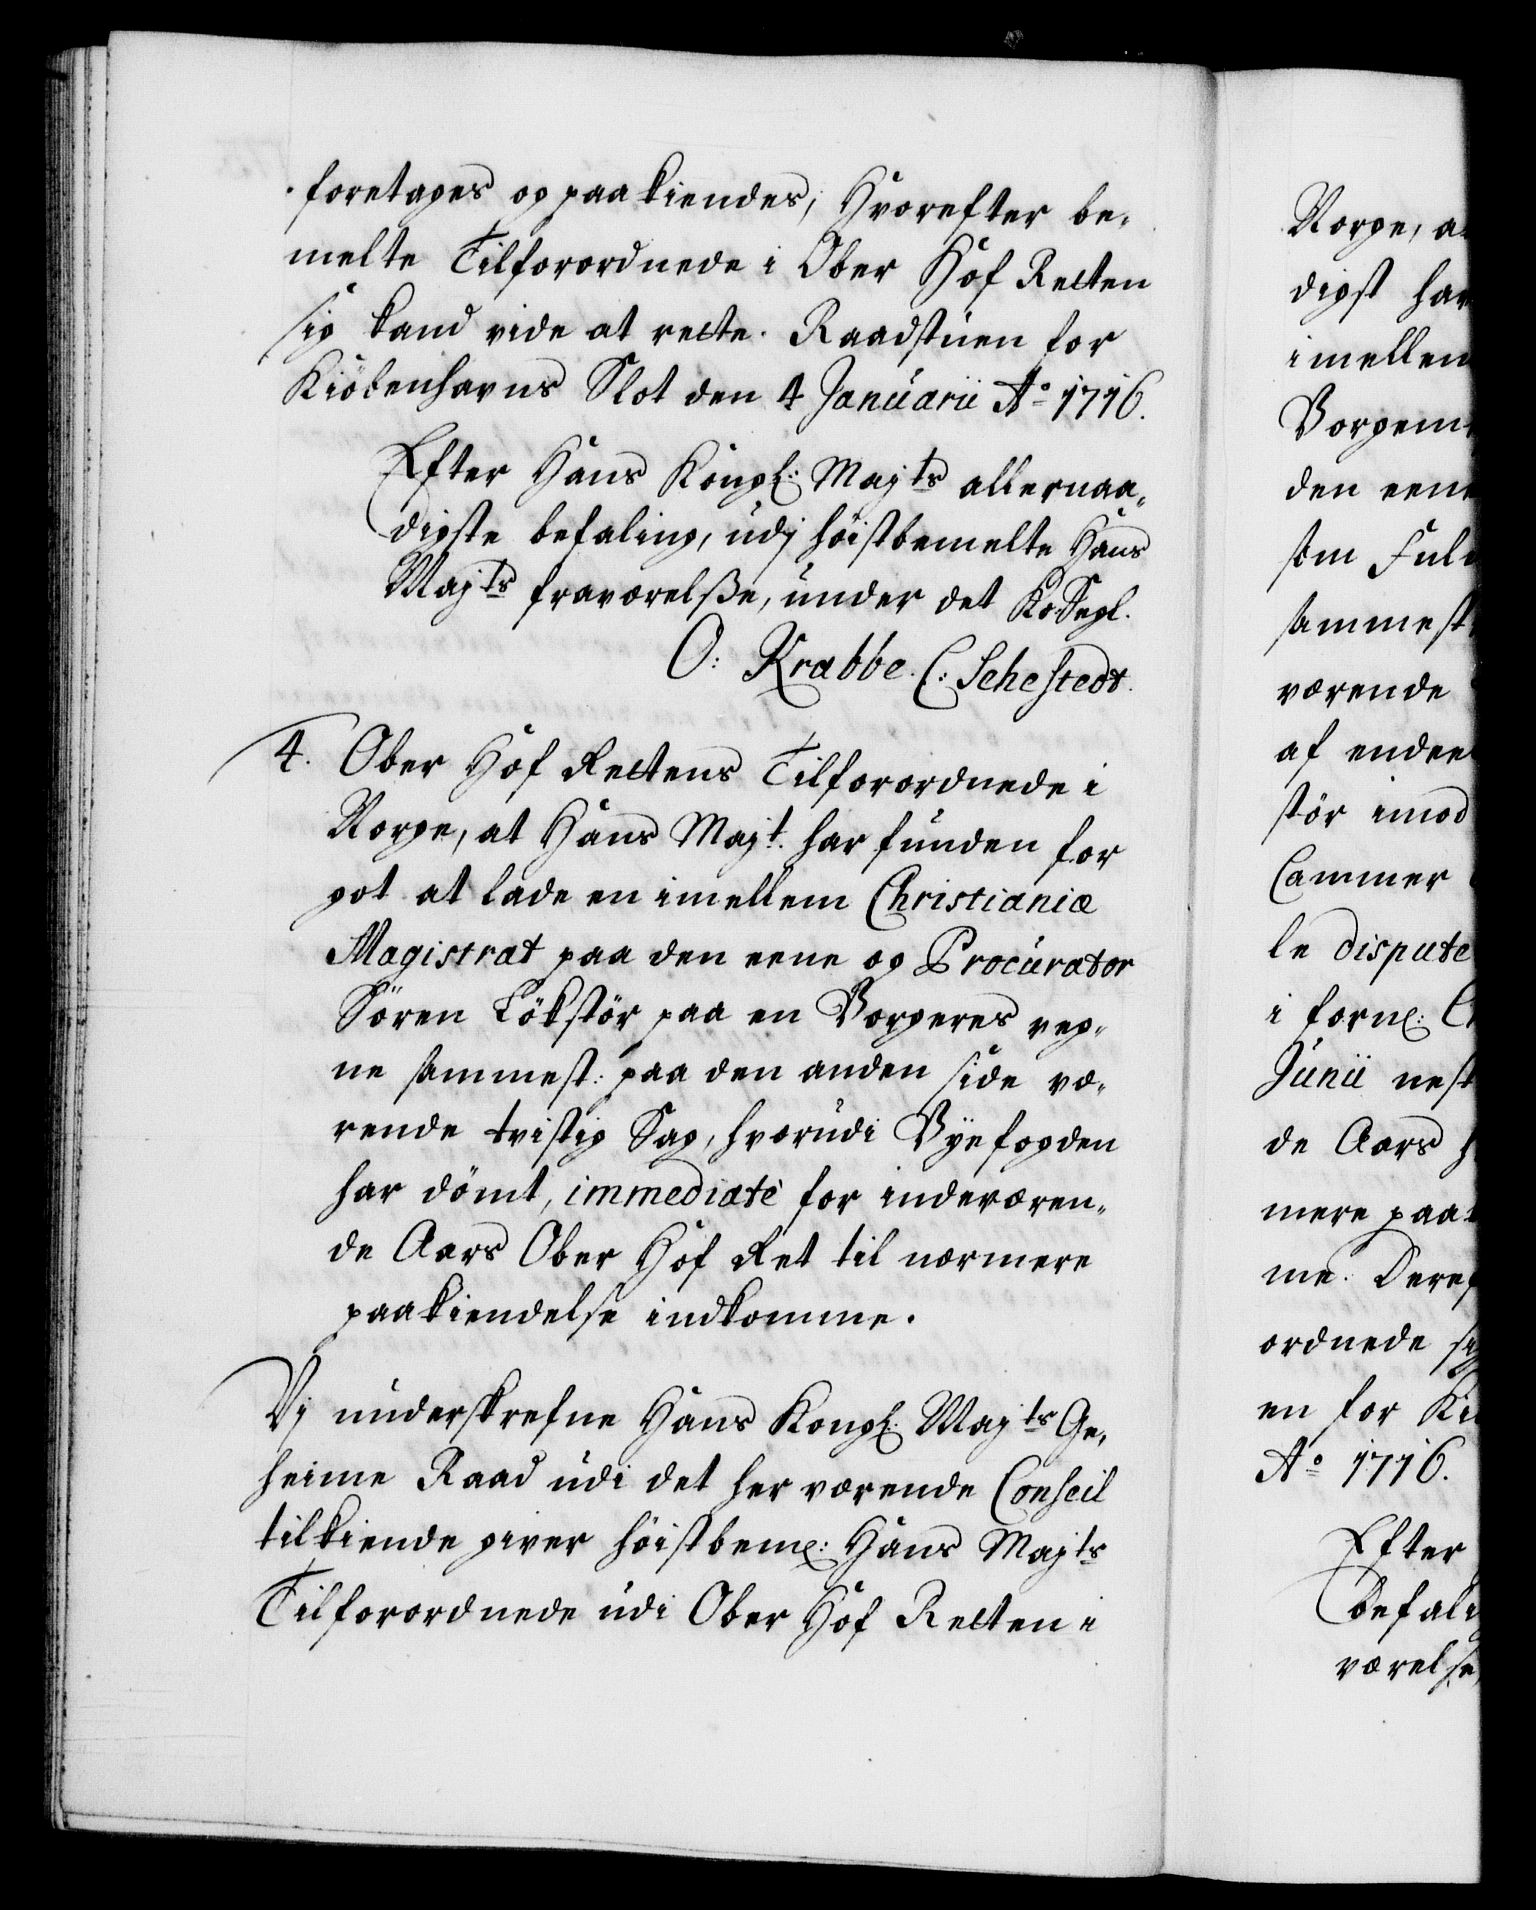 foretages og paakiendes, Hvorefter be-
melte Tilforordnede i Ober Hof Retten
sig kand vide at rette. Raadstuen for
Kiöbenhavns Slot den 4 Januarii Ao 1716.
Efter Hans Kongl: Majts allernaa-
digste befaling, udj höistbemelte Hans
Majts fraværelsse, under det
O: Krabbe. C: Sehestedt.
4. Ober Hof Rettens Tilforordnede i
Norge, at Hans Majt. har funden for
got at lade en imellem Christianiæ
Magistrat paa den eene og Procurator
Sören Lökstör paa en Borgeres veg-
ne sammest: paa den anden side væ-
rende tvistig Sag, hvorudi Byefogden
har dömt, immediatè for indeværen-
de Aars Ober Hof Ret til nærmere
paakiendelse indkomme.
Vj underskrefne Hans Kongl: Majts Ge-
heime Raad udi det her værende Conseil
tilkiende giver höistbeml: Hans Majts
Tilforordnede udi Ober Hof Retten i
Norge, a
digst har
imellem
Borgem
den eene
som Ful
sammest
værende
af endee
stör imod
Cammer
le dispute
i forne: C
Junii nest
de Aars h
mere paa
me. Deref
ordnede si
en for Ki
Ao 1716.
Efter
befali
værelse